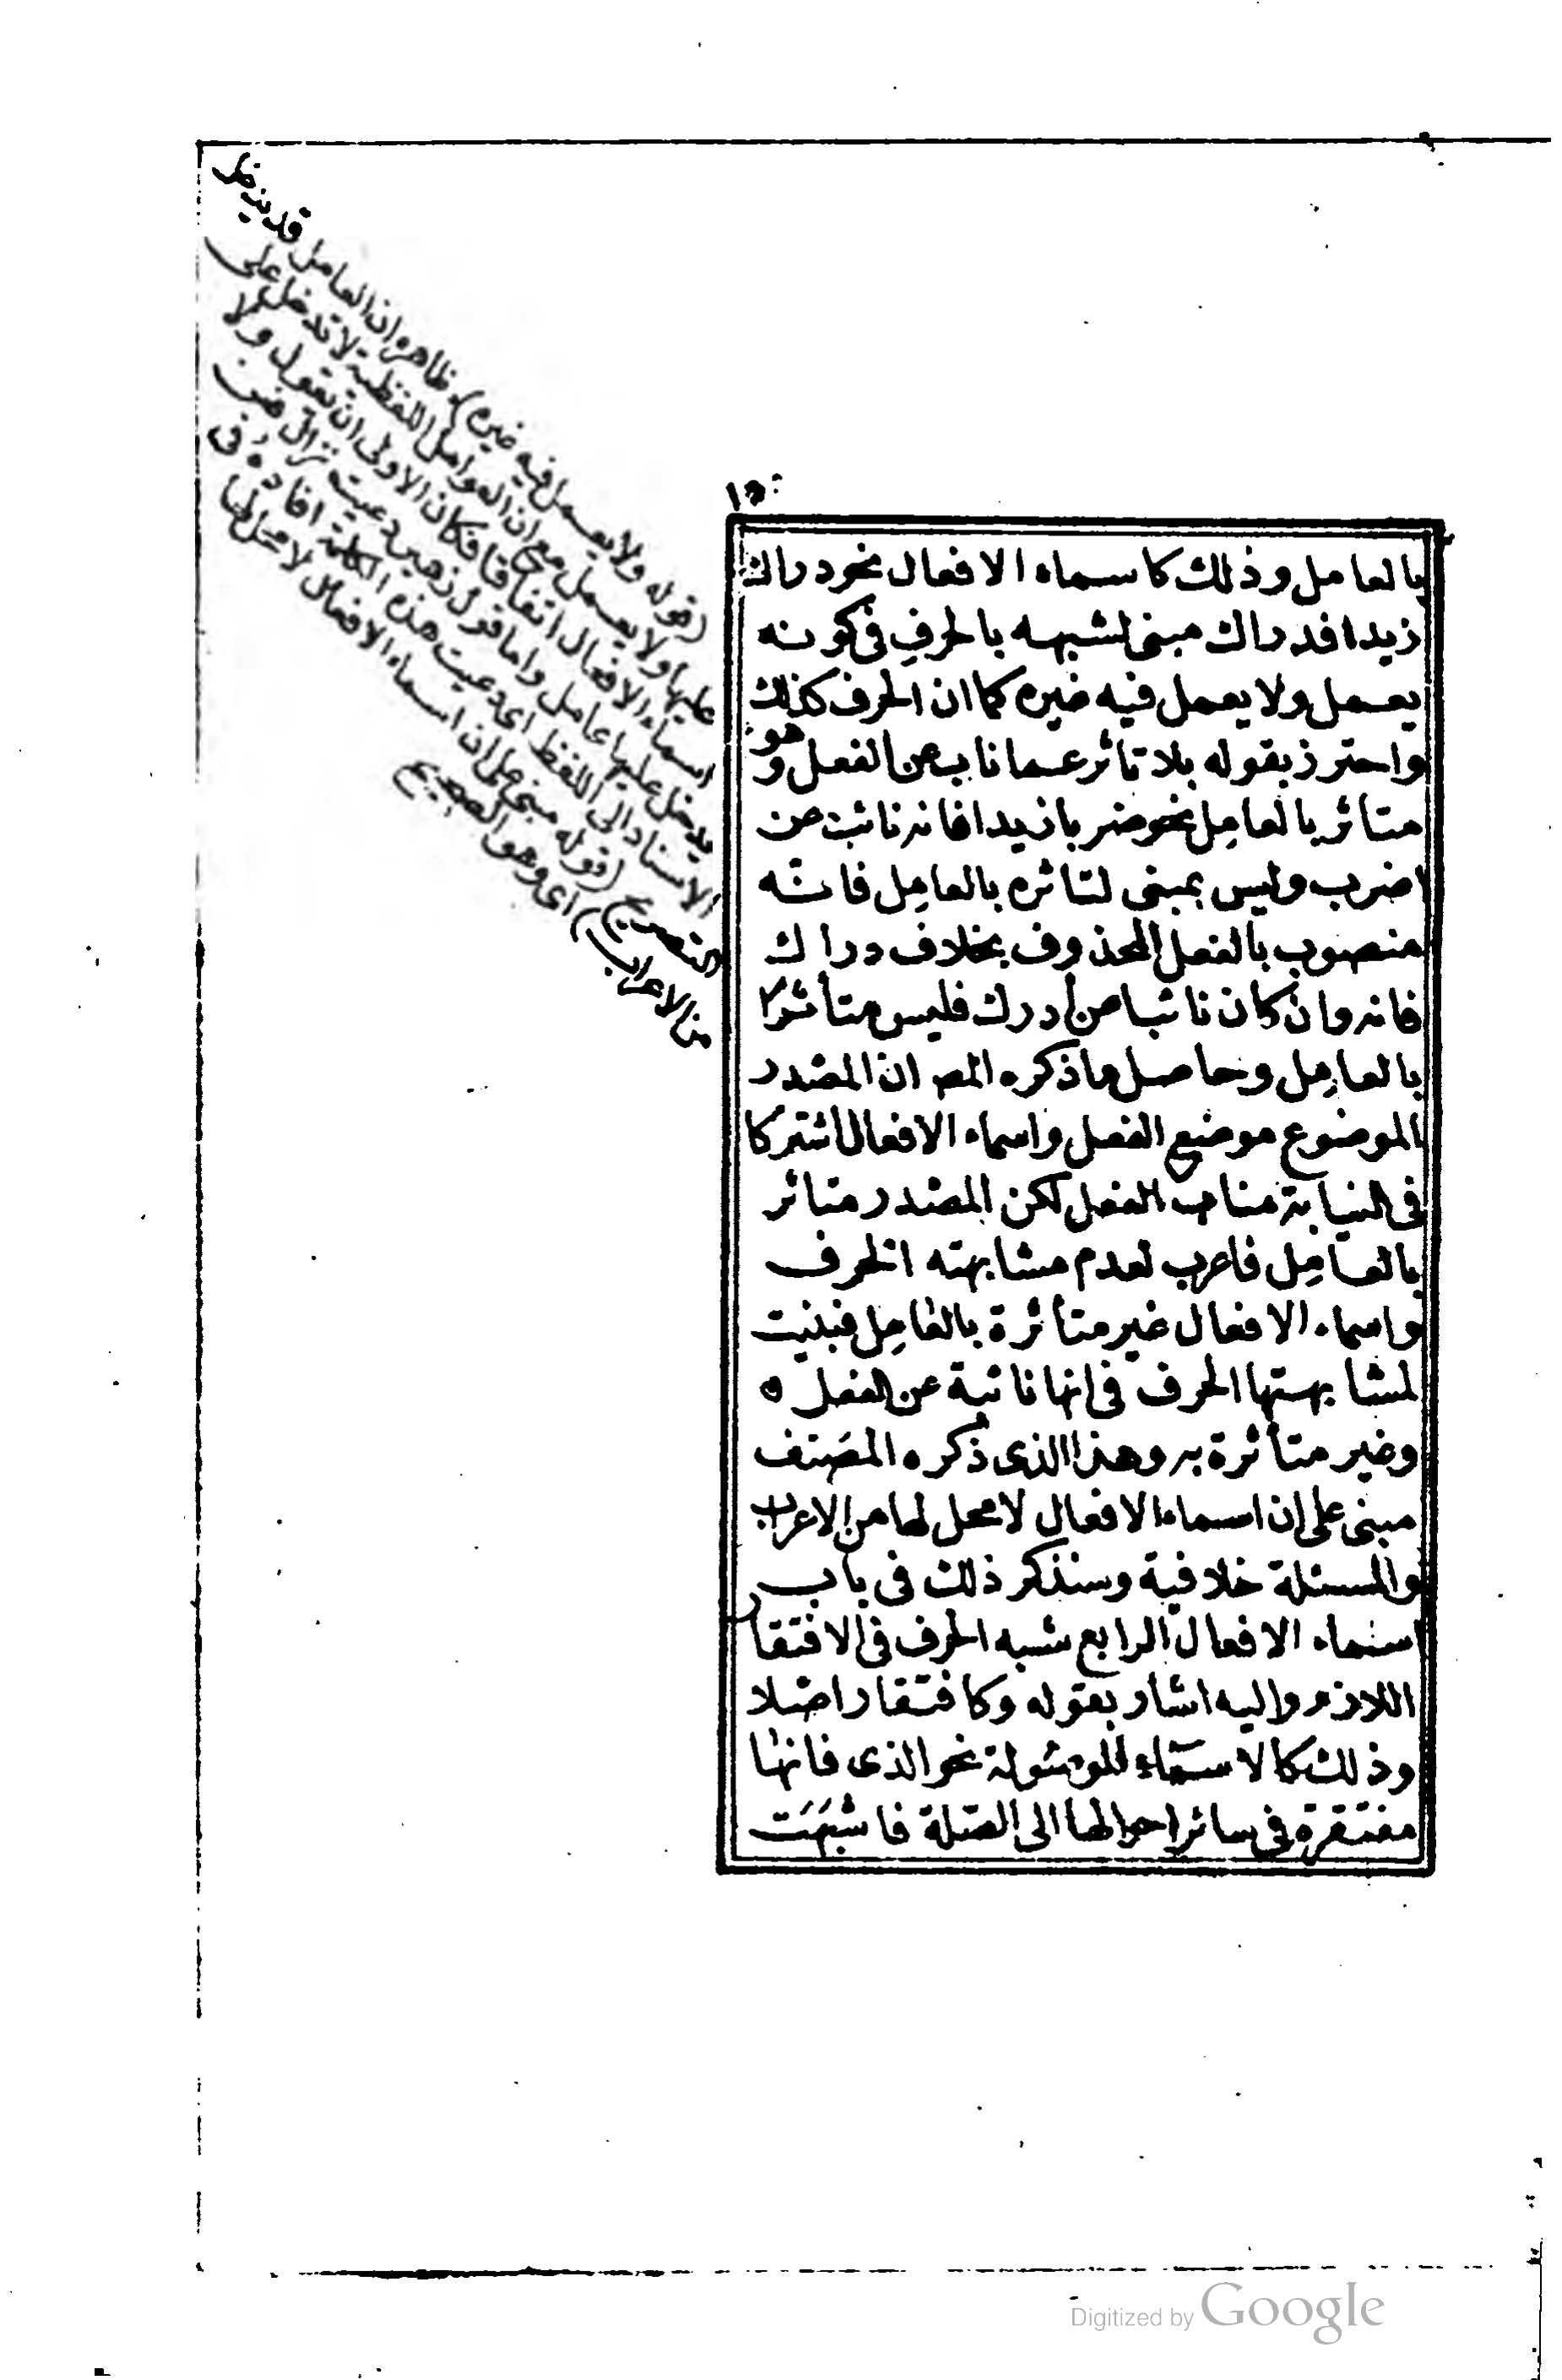 ١٥
بالعامل وذلك كاسماء الافعال نحو دراك
زيدا فدراك مبنى لشبهه بالحرف فى كونه
يعمل ولا يعمل فيه غيره كما ان الحرف كذلك
واحترز بقوله بلا تاثر عما ناب عن الفعل وهو
متاثر بالعامل نحو ضربا زيدا فانه نائب عن
اضرب وليس بمبنى لتاثره بالعامل فانه
منصوب بالفعل المحذوف بخلاف دراك
فانه وان كان نائبا عن أدرك فليس متأثرا
بالعامل وحاصل ما ذكره المص ان المصدر
الموضوع موضع الفعل واسماء الافعال اشتركا
فى النيابة مناب الفعل لكن المصدر متاثر
بالعامل فاعرب لعدم مشابهته الحرف
واسماء الافعال غير متأثرة بالعامل فبنيت
لمشابهتها الحرف فى انها نائبة عن الفعل ه
وغير متأثرة به وهذا الذى ذكره المصنف
مبنى على ان اسماء الافعال لا محل لها من الاعراب
والمسئلة خلافية وسنذكر ذلك فى باب
اسماء الافعال الرابع شبه الحرف فى الافتقار
اللازم واليه اشار بقوله وكافتقار اصلا
وذلك كالاسماء الموصولة نحو الذى فانها
مفتقرة فى سائر احوالها الى الصلة فاشبهت
(قوله ولا يعمل فيه غيره) ظاهره ان العامل قد يدخل
عليها ولا يعمل مع ان العوامل اللفظية لا تدخل على
اسماء الافعال اتفاقا فكان الاولى ان يقول ولا
يدخل عليها عامل واما قول زهير دعيت نزال فمن
الاسناد الى اللفظ اى دعيت هذه الكلمة افاده فى
التصريح (قوله مبنى على ان اسماء الافعال لا محل لها
من الاعراب) اى وهو الصحيح
Digitized by Google